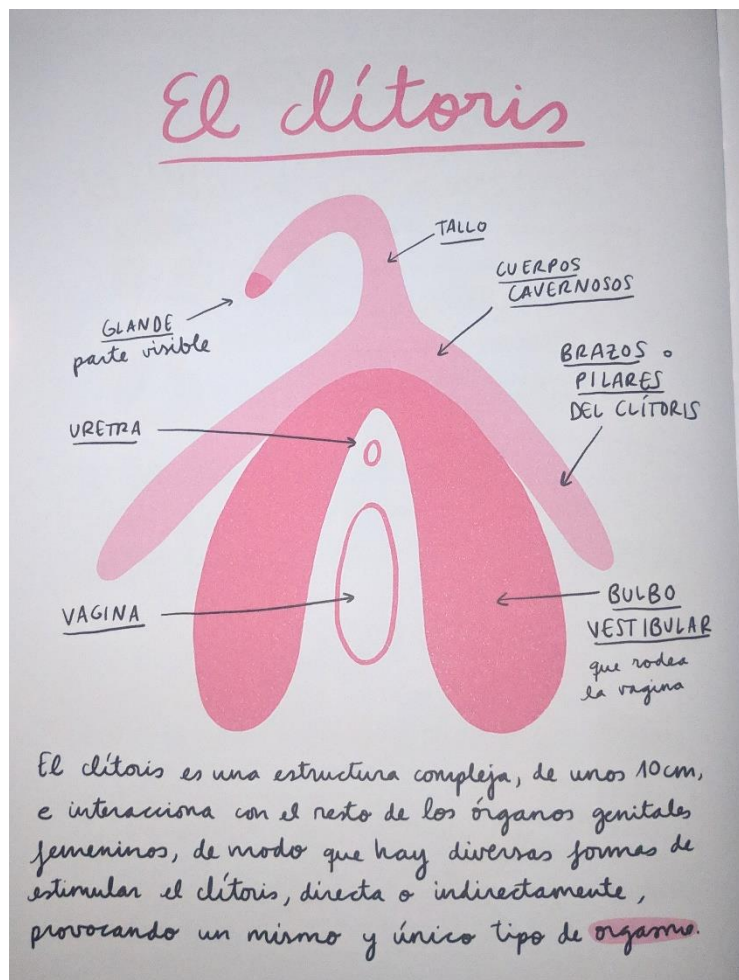 El clítoris
TALLO
CUERPOS
CAVERNOSOS
GLANDE
parte visible
BRAZOS o
PILARES
DEL CLÍTORIS
URETRA
VAGINA
BULBO
VESTIBULAR
que rodea
la vagina
El clítoris es una estructura compleja, de unos 10cm,
e interacciona con el resto de los órganos genitales
femeninos, de modo que hay diversas formas de
estimular el clítoris, directa o indirectamente,
provocando un mismo y único tipo de orgasmo.